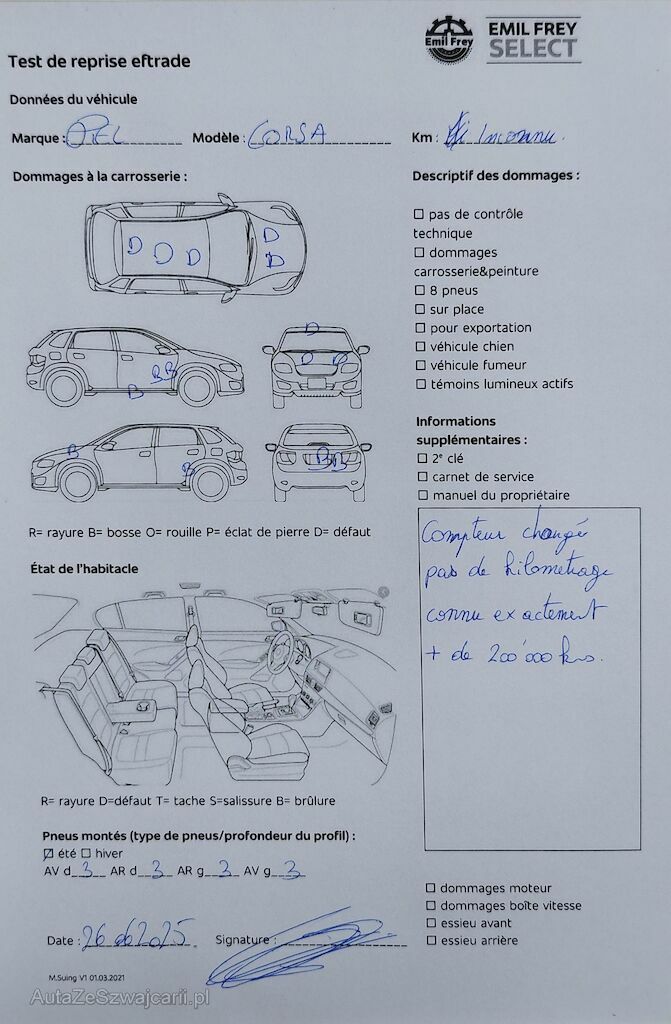 Emil Frey
EMIL FREY
SELECT
Test de reprise eftrade
Données du véhicule
Marque : OPEL Modèle : CORSA Km : Inconnu.
Dommages à la carrosserie :
Descriptif des dommages :
D D D D D
☐ pas de contrôle
technique
☐ dommages
carrosserie&peinture
☐ 8 pneus
☐ sur place
☐ pour exportation
☐ véhicule chien
☐ véhicule fumeur
☐ témoins lumineux actifs
B B B
D D D
B B
B B
Informations
supplémentaires :
☐ 2e clé
☐ carnet de service
☐ manuel du propriétaire
R= rayure B= bosse O= rouille P= éclat de pierre D= défaut
Compteur changé
pas de kilométrage
connu exactement
+ de 200'000 kms.
État de l'habitacle
R= rayure D=défaut T= tache S=salissure B= brûlure
Pneus montés (type de pneus/profondeur du profil) :
☑ été ☐ hiver
AV d 3 AR d 3 AR g 3 AV g 3
☐ dommages moteur
☐ dommages boîte vitesse
☐ essieu avant
☐ essieu arrière
Date : 26 06 2025 Signature :
M.Suing V1 01.03.2021
AutaZeSzwajcarii.pl